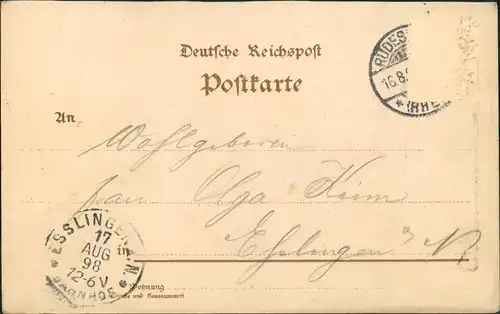 Deutsche Reichspost
Postkarte
RÜDES
16.8.
(RHE
An
Wohlgeboren
Frau Olga Keim
in
Esslingen a/N
ESSLINGEN A.N.
17
AUG
98
12-6V.
BAHNHOF
Wohnung
(Straße und Hausnummer)